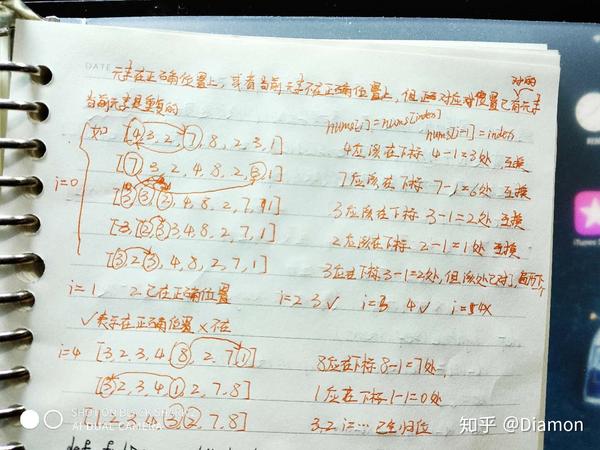 DATE
元素在正确位置上,或者当前元素不在正确位置上,但正对应对位置已有元素
对的
当前元素是重复的
nums[i] = nums[index]
nums[i-1] = index
如 [4,3,2,7,8,2,3,1] 4应该在下标 4-1=3处 互换
i=0 [7 3,2,4,8,2,3,1] 7应该在下标 7-1=6处 互换
[3,3,2,4,8,2,7,1] 3应该在下标 3-1=2处 互换
[2,3,4,8,2,7,1] 2应该在下标 2-1=1处 互换
[3 2 3,4,8,2,7,1] 3应在下标3-1=2处,但该处已对
i=1 2已在正确位置 i=2 3√ i=3 4√ i=4X
√表示在正确位置 X不在
i=4 [3,2,3,4,8,2,7,1] 8应在下标8-1=7处,
[3 2,3,4,1,2,7,8] 1应在下标1-1=0处
4,3,2,7,8] 3.2 已归位
SHOT ON BLACK SHARK
AI DUAL CAMERA
知乎 @Diamon